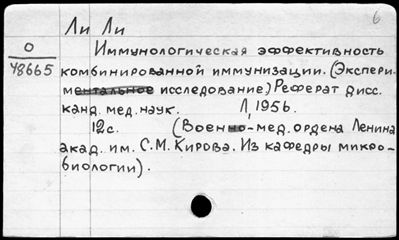 6
Ли Ли
О
48665
Иммунологическая эффективность
комбинированной иммунизации. (Экспери-
ментальное исследование) Реферат дисс.
канд. мед. наук. Л, 1956.
12с. (Военно-мед. ордена Ленина
акад. им. С.М. Кирова. Из кафедры микро-
биологии).